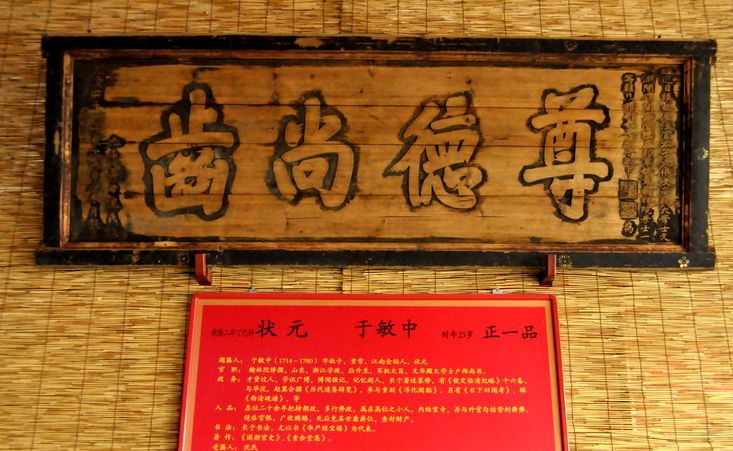 尊德尚齒
乾隆二年丁巳科 状元 于敏中 时年23岁 正一品
题匾人: 于敏中(1714-1780)字叔子,重棠,江南金坛人,状元
官 职: 翰林院修撰,山东,浙江学政,后升至,军机大臣,文华殿大学士户部尚书。
政 务: 才资过人,学识广博,博闻强记,记忆超人,长于著述纂修,有《钦定临清纪略》十六卷,
与毕沅,赵翼合撰《历代通鉴辑览》,参与重刻《淳化阁贴》,另有《日下旧闻考》,辑
《西清砚谱》,等
人 品: 在位二十余年把持朝政,多行弊政,属在高位之小人,内结宦寺,并与外官勾结营利舞弊,
侵吞官银,广收贿赂,死后世袭爵位,查封财产。
书 法: 长于书法,尤以书《华严经宝塔》为代表。
著 作: 《国朝宫史》,《素余堂集》。
受匾人: 沈氏